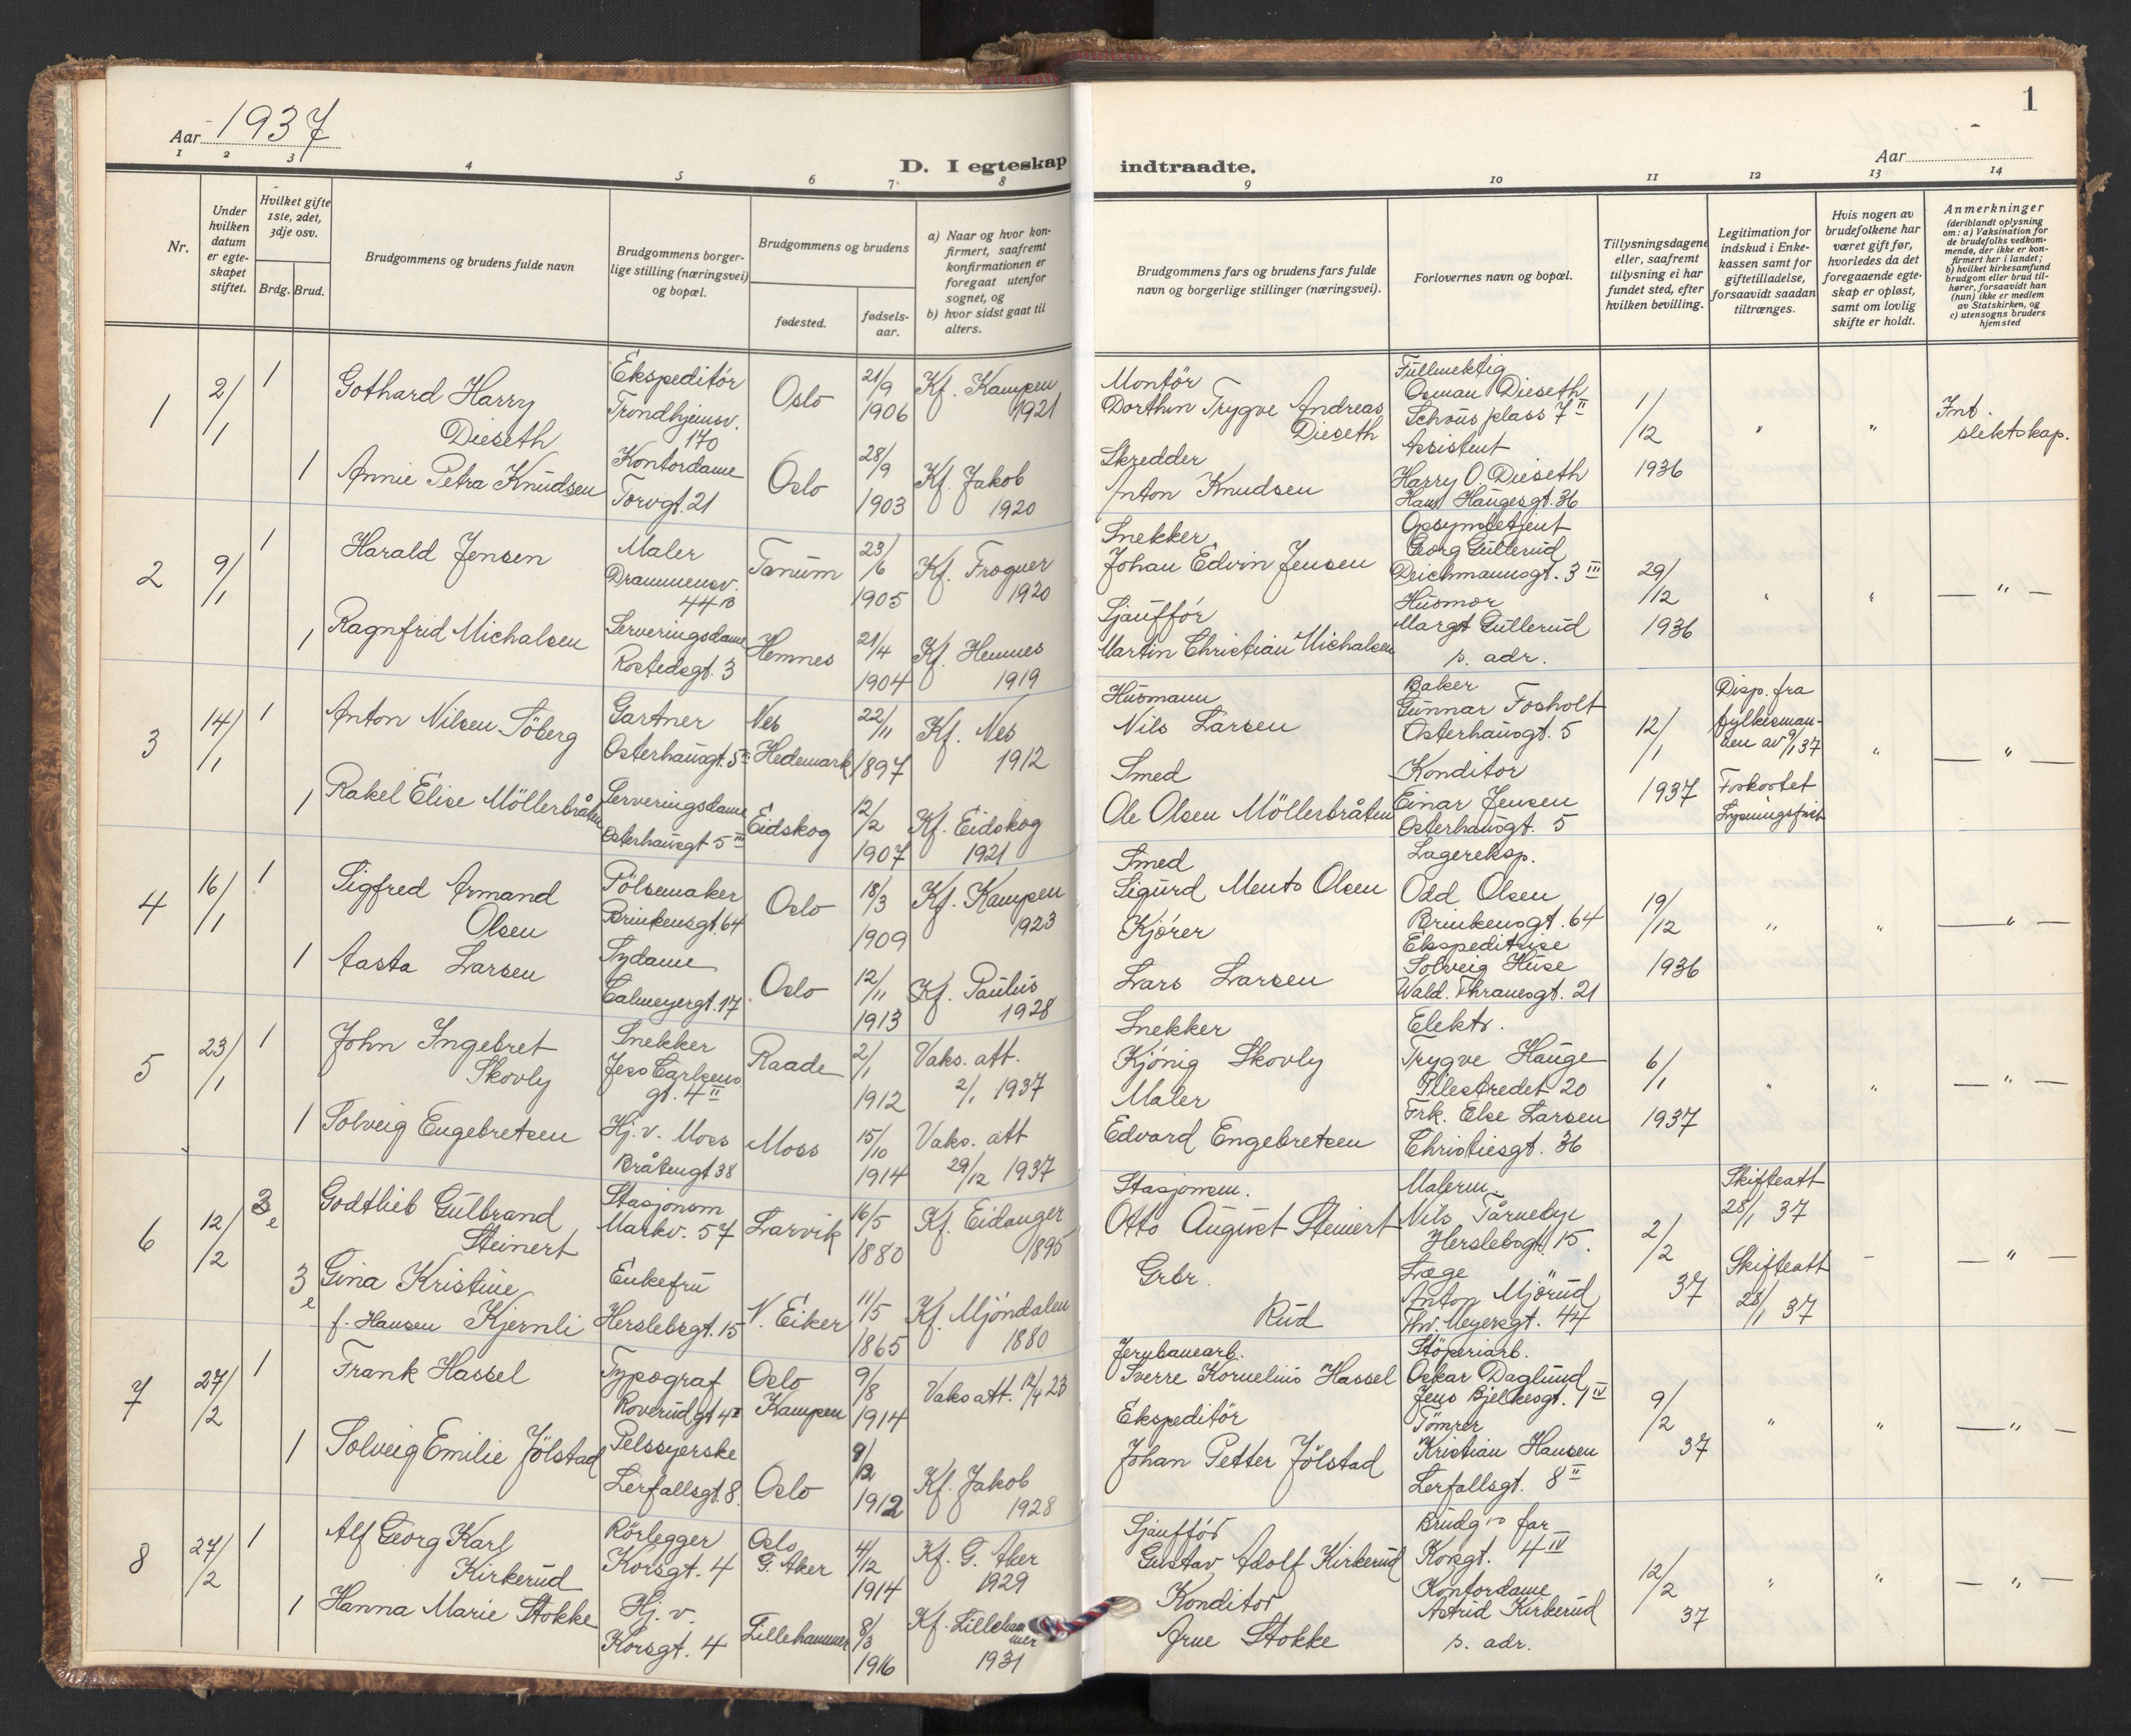 Aar 1937
1 2 3 4 5 6 7 8
D. I egteskap
Nr.
Under
hvilken
datum
er egte-
skapet
stiftet.
Hvilket gifte
1ste, 2det,
3dje osv.
Brdg. Brud.
Brudgommens og brudens fulde navn
Brudgommens borger-
lige stilling (næringsvei)
og bopæl.
Brudgommens og brudens
fødested.
fødsels-
aar.
a) Naar og hvor kon-
firmert, saafremt
konfirmationen er
foregaat utenfor
sognet, og
b) hvor sidst gaat til
alters.
1
2/1
1
Gothard Harry
Dieseth
Ekspeditör
Trondhjemsv.
170
Oslo
21/9
1906
Kf. Kampen
1921
1
Annie Petra Knudsen
Kontordame
Torvgt. 21
Oslo
28/9
1903
Kf. Jakob
1920
2
9/1
1
Harald Jensen
Maler
Drammensv.
44 B
Tanum
23/6
1905
Kf. Frogner
1920
1
Ragnfrid Michalsen
Serveringsdame
Rostedsgt. 3
Hemnes
21/4
1904
Kf. Hemnes
1919
3
14/1
1
Anton Nilsen Söberg
Gartner
Osterhausgt. 5 III
Nes
Hedemark
22/11
1897
Kf. Nes
1912
1
Rakel Elise Möllerbråten
Serveringsdame
Osterhausgt 5 III
Eidskog
12/2
1907
Kf. Eidskog
1921
4
16/1
1
Sigfred Armand
Olsen
Pölsemaker
Brinkensgt. 64
Oslo
18/3
1909
Kf. Kampen
1923
1
Aasta Larsen
Sydame
Calmeyergt. 17
Oslo
12/11
1913
Kf. Paulus
1928
5
23/1
1
John Ingebret
Skovly
Snekker
Jess Carlsens
gt. 4 II
Raade
2/1
1912
Vaks. att.
2/1 1937
1
Solveig Engebretsen
Hj. v. Moss
Bråtengt 38
Moss
15/10
1914
Vaks. att
29/12 1937
6
12/2
3 e
Godtlieb Gulbrand
Steinert
Stasjonsm
Markv. 57
Larvik
16/5
1880
Kf. Eidanger
1895
3 e
Gina Kristine
f. Hansen Kjernli
Enkefru
Herslebsgt. 15
N. Eiker
11/5
1865
Kf. Mjöndalen
1880
7
27/2
1
Frank Hassel
Typograf
Roverudgt 4 II
Oslo
Kampen
9/8
1914
Vaks att. 12/4 23
1
Solveig Emilie Jölstad
Pelssyerske
Lerfallsgt. 8.
Oslo
9/12
1912
Kf. Jakob
1928
8
27/2
1
Alf Georg Karl
Kirkerud
Rörlegger
Korsgt. 4
Oslo
G. Aker
4/12
1914
Kf. G. Aker
1929
1
Hanna Marie Stokke
Hj. v.
Korsgt. 4
Lillehammer
8/3
1916
Kf. Lilleham
mer
1931
1
Aar
indtraadte.
9 10 11 12 13 14
Brudgommens fars og brudens fars fulde
navn og borgerlige stillinger (næringsvei).
Forlovernes navn og bopæl.
Tillysningsdagene
eller, saafremt
tillysning ei har
fundet sted, efter
hvilken bevilling.
Legitimation for
indskud i Enke-
kassen samt for
giftetilladelse,
forsaavidt saadan
tiltrænges.
Hvis nogen av
brudefolkene har
været gift før,
hvorledes da det
foregaaende egte-
skap er opløst,
samt om lovlig
skifte er holdt.
Anmerkninger
(deriblandt oplysning
om: a) Vaksination for
de brudefolks vedkom-
mende, der ikke er kon-
firmert her i landet;
b) hvilket kirkesamfund
brudgom eller brud til-
hører, forsaavidt han
(hun) ikke er medlem
av Statskirken, og
c) utensogns bruders
hjemsted
Montör
Dorthin Trygve Andreas
Dieseth
Skredder
Anton Knudsen
Fullmektig
Osman Dieseth
Schous plass 7 II
Assistent
Harry O. Dieseth
Hans Haugesgt. 36
1/12
1936
"
"
Int.
slektskap.
Snekker
Johan Edvin Jensen
Sjauffør
Martin Christian Michalsen
Opsynsbetjent
Georg Gullerud
Deichmannsgt. 3 III
Husmor
Margot Gullerud
s. adr.
29/12
1936
"
"
— " —
Husmann
Nils Larsen
Smed
Ole Olsen Möllerbråten
Baker
Gunnar Fosholt
Osterhausgt. 5
Konditor
Einar Jensen
Osterhausgt. 5
12/1
1937
Disp. fra
fylkesman-
nen av 9/1 37
Forkortet
Lysningsfrist
"
— " —
Smed
Sigurd Ments Olsen
Kjører
Lars Larsen
Lagereksp.
Odd Olsen
Brinkensgt. 64
Ekspeditrise
Solveig Huse
Wald. Thranesgt. 21
19/12
1936
"
"
— " —
Snekker
Kjönig Skovly
Maler
Edvard Engebretsen
Elektr.
Trygve Hauge
Pilestredet 20
Frk. Else Larsen
Christiesgt. 36
6/1
1937
"
"
— " —
Stasjonsm.
Otto August Steinert
Grbr.
Rud
Malerm.
Nils Tårnebye
Herslebsgt. 15.
Læge
Anton Mjörud
Thv. Meyersgt. 44
2/2
37
Skifteatt
28/1 37
Skifteatt
28/1 37
— " —
Jernbanearb.
Sverre Kornelius Hassel
Ekspeditör
Johan Petter Jölstad
Støperiarb.
Oskar Daglund
Jens Bjelkesgt. 1 IV
Tömrer
Kristian Hansen
Lerfallsgt. 8 II
9/2
37
"
"
— " —
Sjaufför
Gustav Adolf Kirkerud
Konditor
Arne Stokke
Brudg.s far
Korsgt. 4 IV
Kontordame
Astrid Kirkerud
s. adr.
12/2
37
"
"
— " —